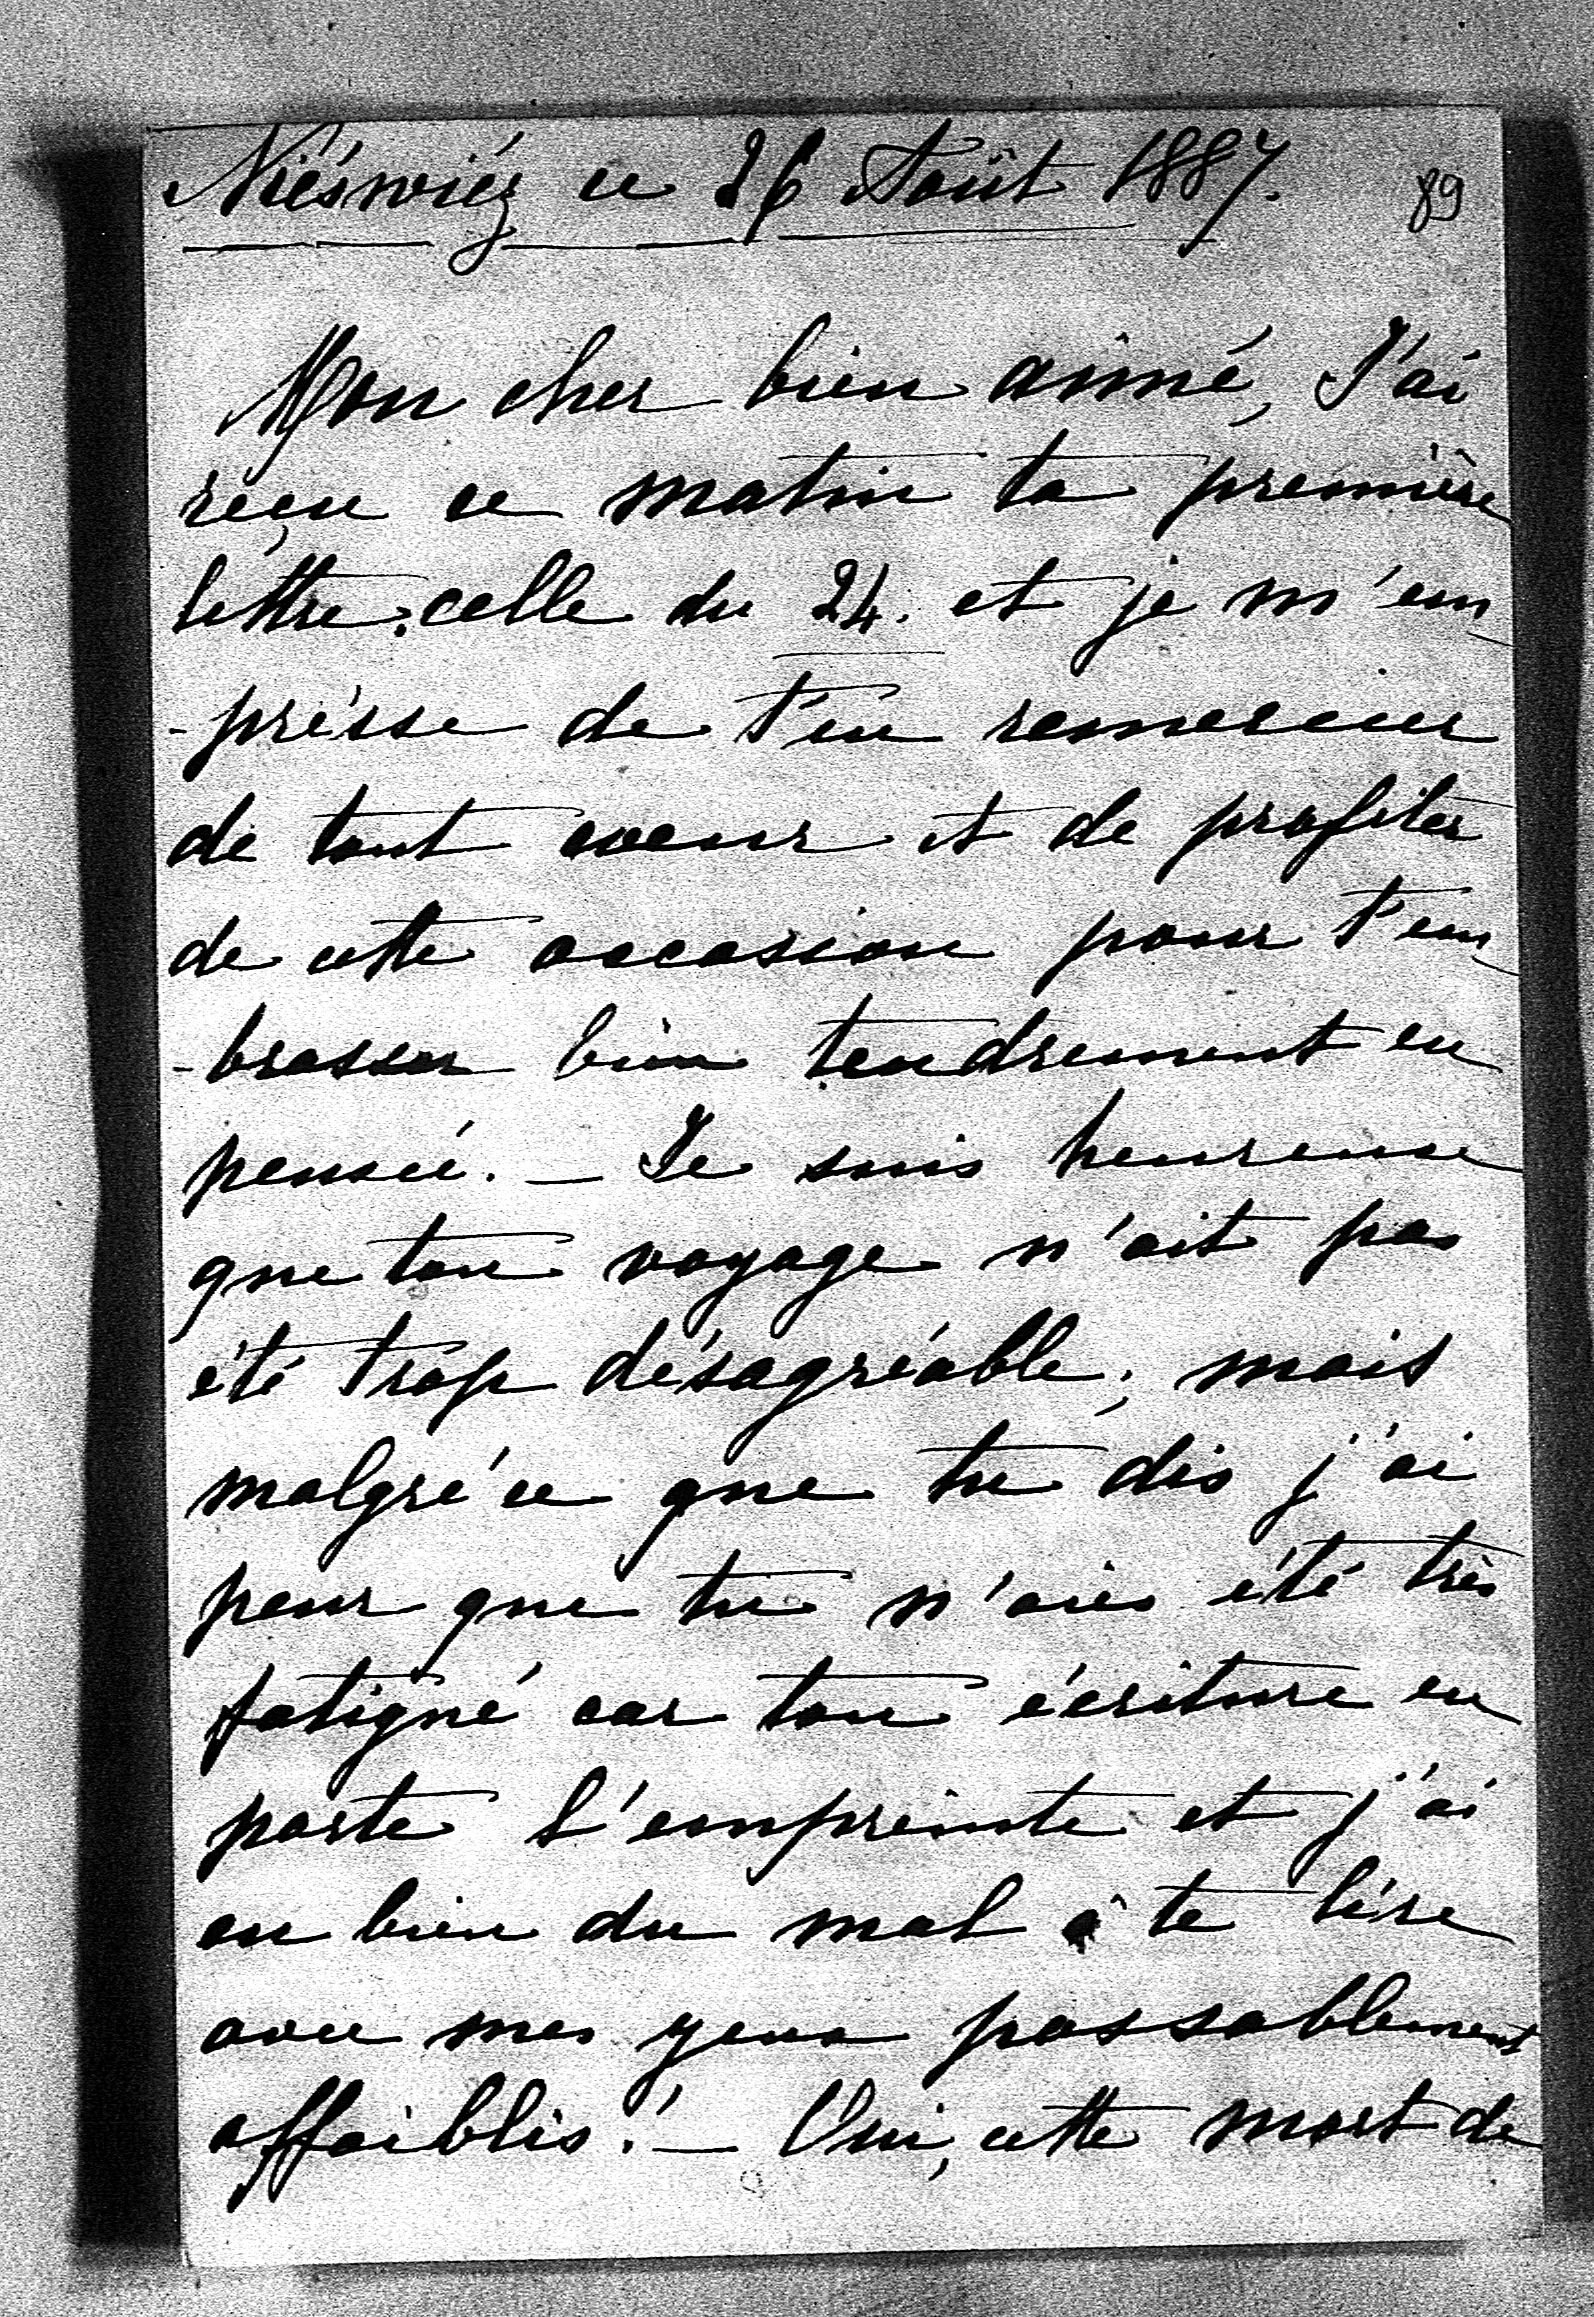 Niéswiéz ce 26 Août 1887. 89
Mon cher bien aimé, J'ai
reçu ce matin ta première
lettre, celle du 24. et je m'em
-présse de t'en remercier
de tout coeur et de profiter
de cette occasion pour t'em
-brasser bien tendrement en
pensée. — Je suis heureuse
que ton voyage n'ait pas
été trop désagréable; mais
malgré ce que tu dis j'ai
peur que tu n'aies été très
fatigué car ton écriture en
porte l'empreinte et j'ai
eu bien du mal à te lire
avec mes yeux passablement
affaiblis! — Oui, cette mort de